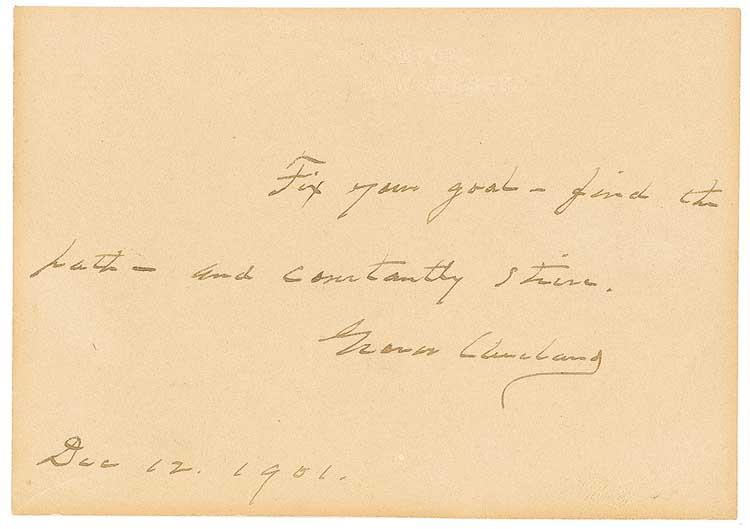 Fix your goal – find the
path – and constantly strive.
Grover Cleveland
Dec 12. 1901.